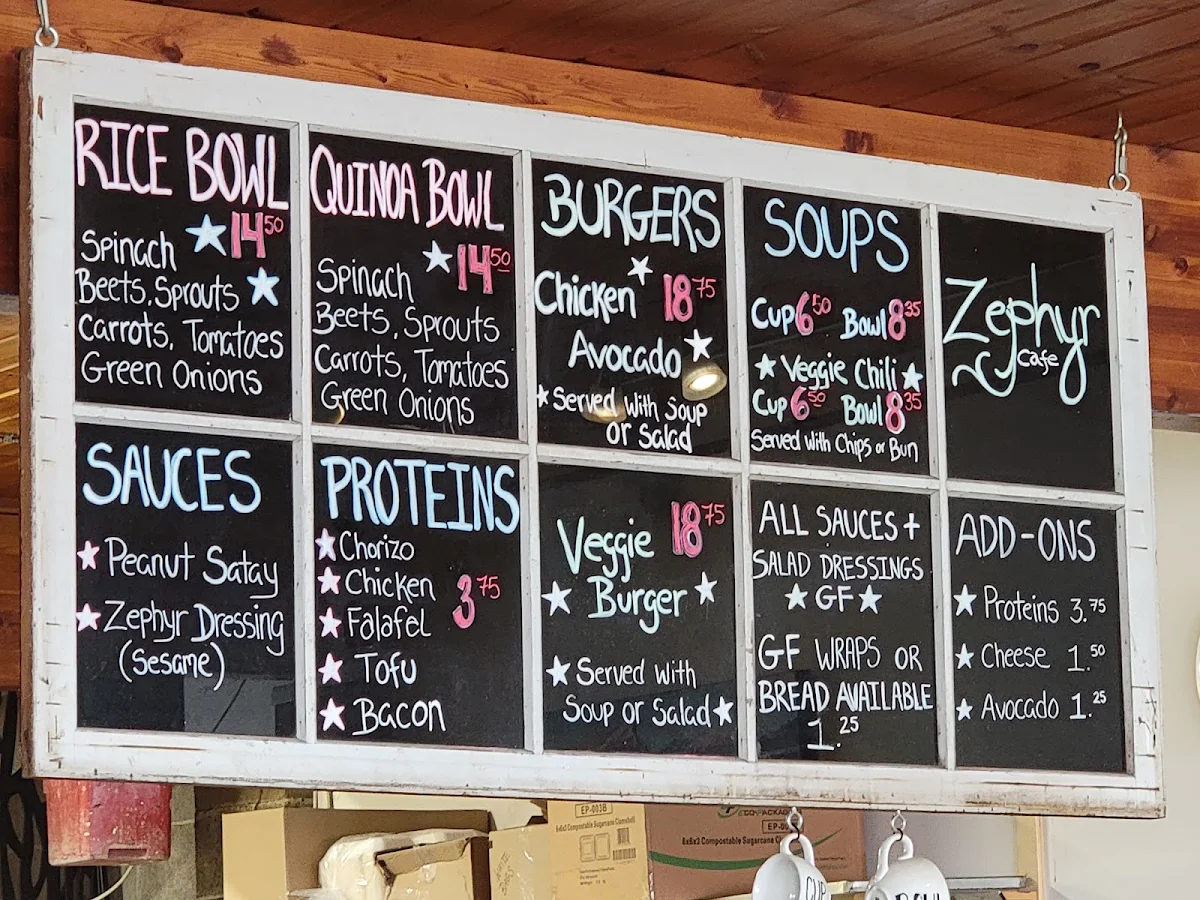 RICE BOWL
14.50
Spinach
Beets, Sprouts
Carrots, Tomatoes
Green Onions
QUINOA BOWL
14.50
Spinach
Beets, Sprouts
Carrots, Tomatoes
Green Onions
BURGERS
Chicken 18.75
Avocado
Served with Soup
or Salad
SOUPS
Cup 6.50 Bowl 8.35
Veggie Chili
Cup 6.50 Bowl 8.35
Served with Chips or Bun
Zephyr
Cafe
SAUCES
Peanut Satay
Zephyr Dressing
(Sesame)
PROTEINS
Chorizo
Chicken
3.75
Falafel
Tofu
Bacon
18.75
Veggie
Burger
Served with
Soup or Salad
ALL SAUCES +
SALAD DRESSINGS
GF
GF WRAPS OR
BREAD AVAILABLE
1.25
ADD-ONS
Proteins 3.75
Cheese 1.50
Avocado 1.25
EP-003B
6x6x3 Compostable Sugarcane Clamshell
6x6x3 Compostable Sugarcane
CUP
BOWL